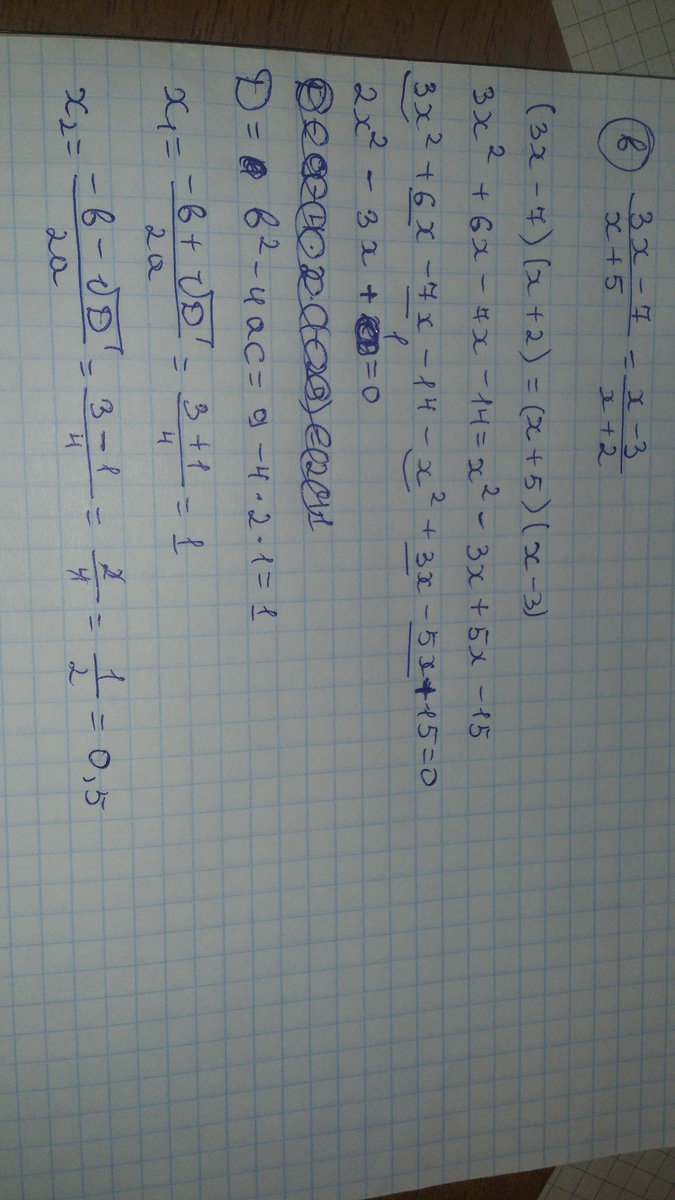 в) (3x - 7)/(x + 5) = (x - 3)/(x + 2)
(3x - 7)(x + 2) = (x + 5)(x - 3)
3x² + 6x - 7x - 14 = x² - 3x + 5x - 15
3x² + 6x - 7x - 14 - x² + 3x - 5x + 15 = 0
2x² - 3x + 1 = 0
D = b² - 4ac = 9 - 4·2·1 = 1
x₁ = (-b + √D)/2a = (3 + 1)/4 = 1
x₂ = (-b - √D)/2a = (3 - 1)/4 = 2/4 = 1/2 = 0,5